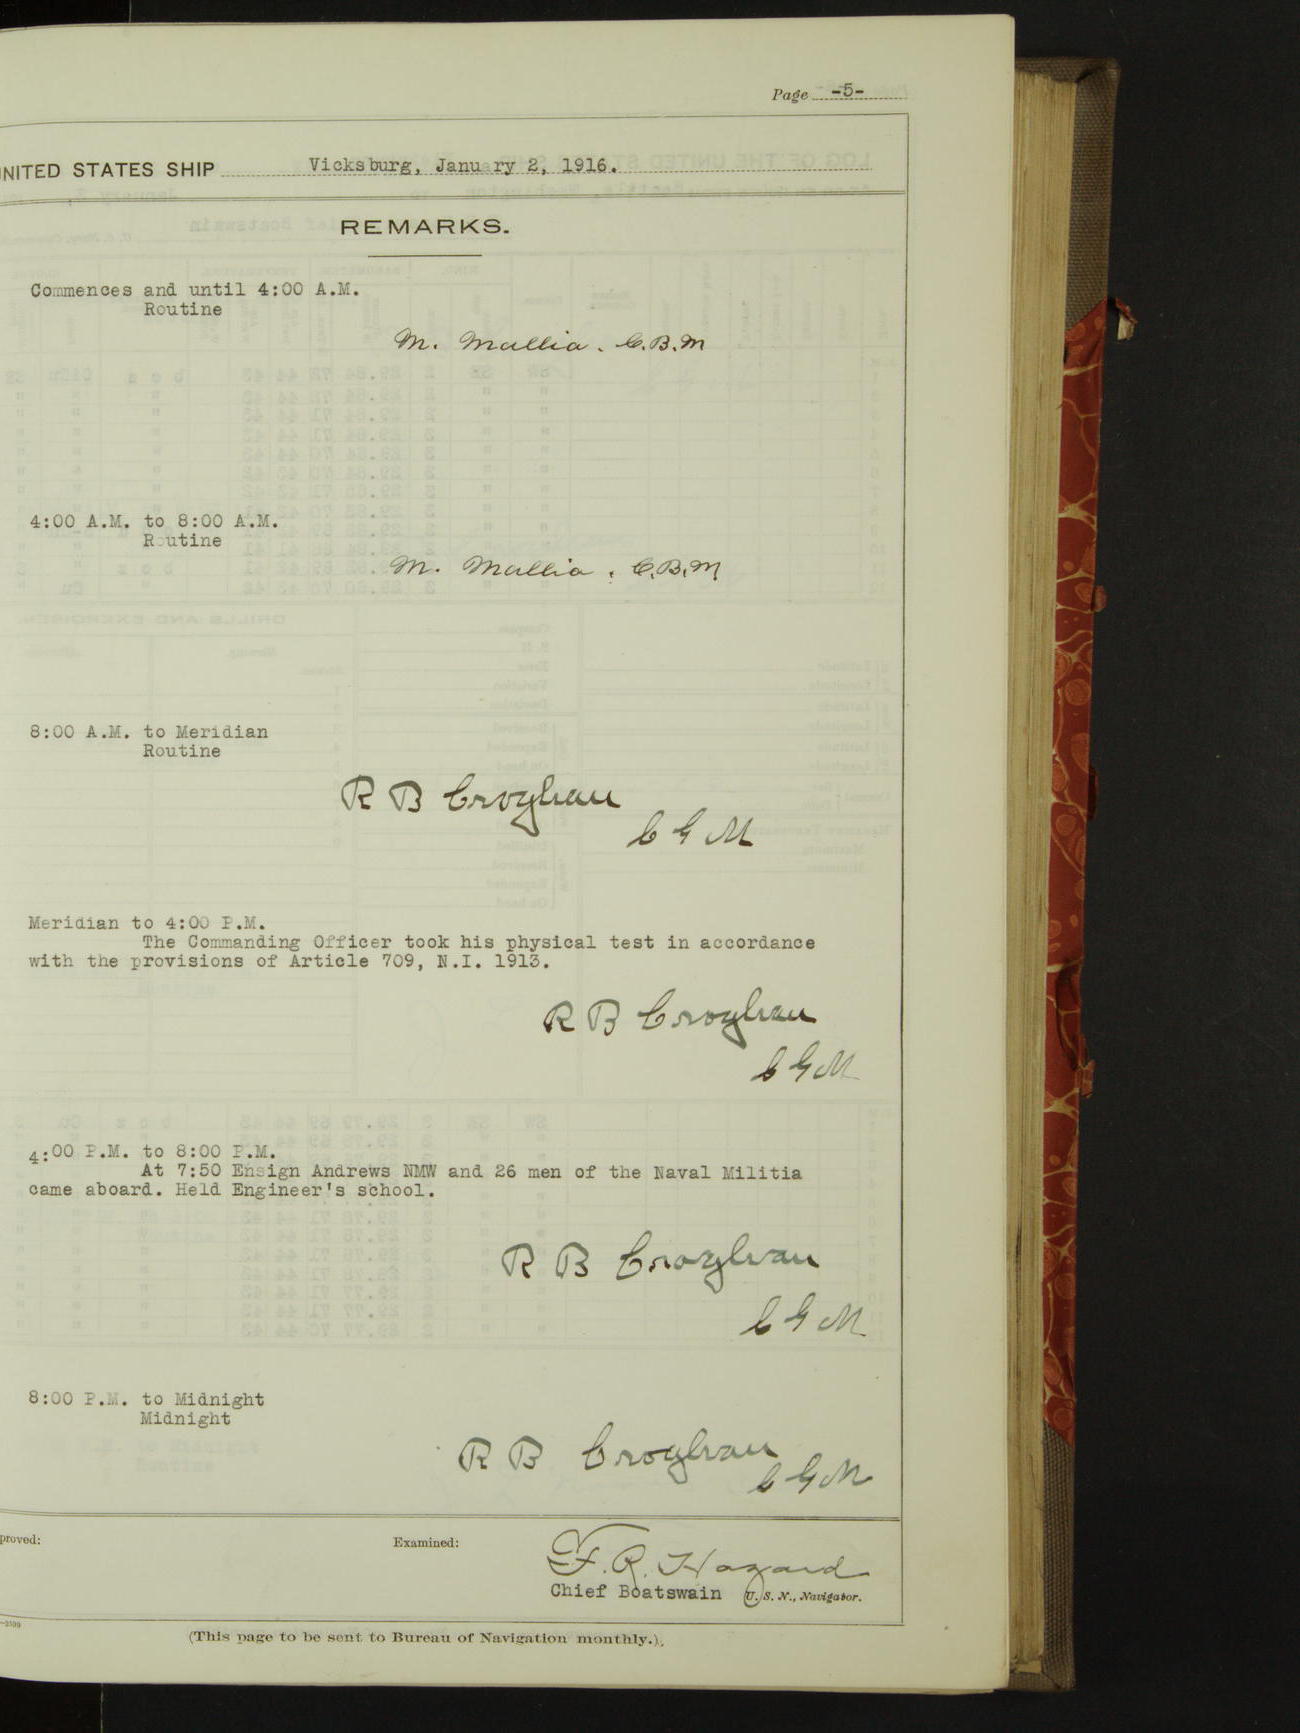 Page -5-
UNITED STATES SHIP Vicksburg, January 2, 1916.
REMARKS.
Commences and until 4:00 A.M.
Routine
M. Mallia. C.B.M
4:00 A.M. to 8:00 A.M.
Routine
M. Mallia. C.B.M
8:00 A.M. to Meridian
Routine
R B Croghan
C G M
Meridian to 4:00 P.M.
The Commanding Officer took his physical test in accordance
with the provisions of Article 709, N.I. 1913.
R B Croghan
C G M
4:00 P.M. to 8:00 P.M.
At 7:50 Ensign Andrews NMW and 26 men of the Naval Militia
came aboard. Held Engineer's school.
R B Croghan
C G M
8:00 P.M. to Midnight
Midnight
R B Croghan
C G M
proved:
Examined:
F. R. Hazard
Chief Boatswain U. S. N., Navigator.
(This page to be sent to Bureau of Navigation monthly.)